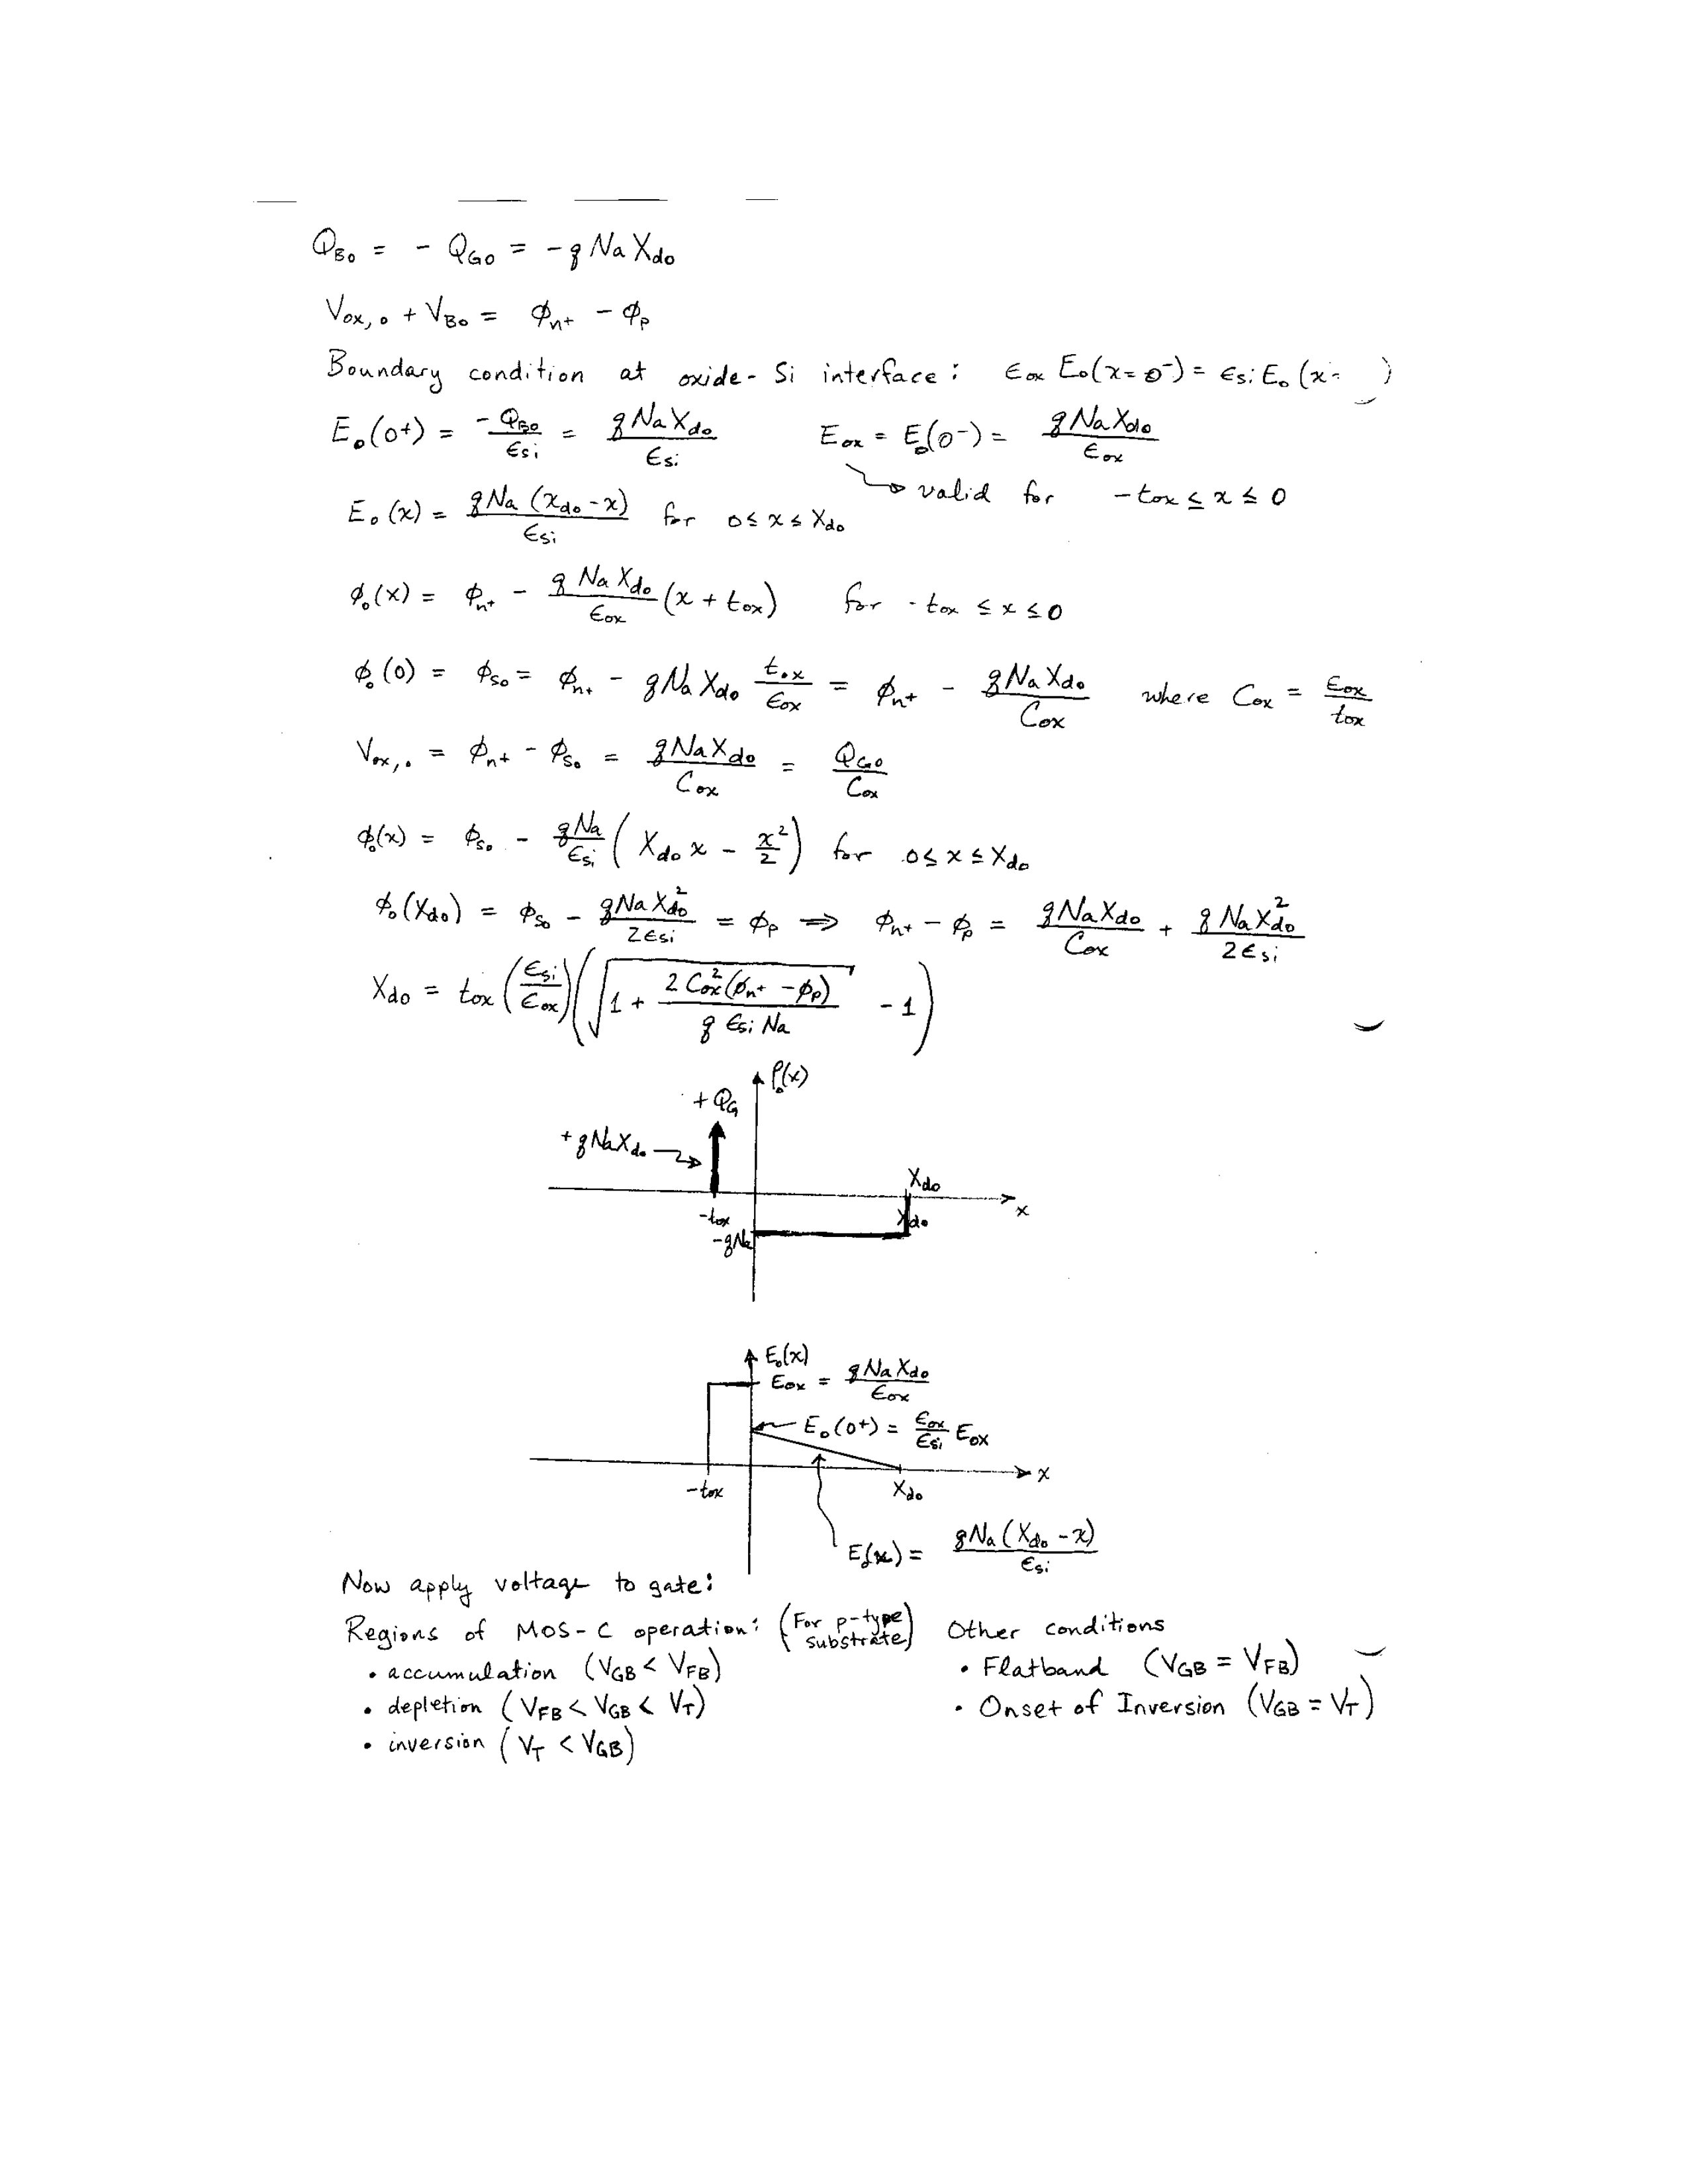 Q_B0 = - Q_G0 = -qNaX_do
V_ox,o + V_Bo = ϕ_n+ - ϕ_p
Boundary condition at oxide-Si interface: ϵ_ox E_o(x=0⁻) = ϵ_si E_o (x= )
E_o(0⁺) = -Q_Bo/ϵ_si = qNaX_do/ϵ_si E_ox = E_o(0⁻) = qNaX_do/ϵ_ox
valid for -tox ≤ x ≤ 0
E_o(x) = qNa(x_do-x)/ϵ_si for 0≤ x ≤ X_do
ϕ_o(x) = ϕ_n+ - qNaX_do/ϵ_ox (x + tox) for -tox ≤ x ≤ 0
ϕ_o(0) = ϕ_so = ϕ_n+ - qNaX_do tox/ϵ_ox = ϕ_n+ - qNaX_do/Cox where Cox = ϵ_ox/tox
V_ox,o = ϕ_n+ - ϕ_so = qNaX_do/Cox = Q_Go/Cox
ϕ_o(x) = ϕ_so - qNa/ϵ_si (X_do x - x²/2) for 0≤ x ≤ X_do
ϕ_o(X_do) = ϕ_so - qNaX_do²/2ϵ_si = ϕ_p ⇒ ϕ_n+ - ϕ_p = qNaX_do/Cox + qNaX_do²/2ϵ_si
X_do = tox (ϵ_si/ϵ_ox)(√(1 + 2Cox²(ϕ_n+ - ϕ_p)/qϵ_siNa) - 1)
ρ_o(x)
+Q_G
+qNaX_do
X_do
x
-tox
X_do
-qNa
E_o(x)
E_ox = qNaX_do/ϵ_ox
E_o(0⁺) = ϵ_ox/ϵ_si E_ox
x
-tox
X_do
E_o(x) = qNa(X_do-x)/ϵ_si
Now apply voltage to gate:
Regions of MOS-C operation: (For p-type substrate) Other conditions
• accumulation (V_GB < V_FB) • Flatband (V_GB = V_FB)
• depletion (V_FB < V_GB < V_T) • Onset of Inversion (V_GB = V_T)
• inversion (V_T < V_GB)